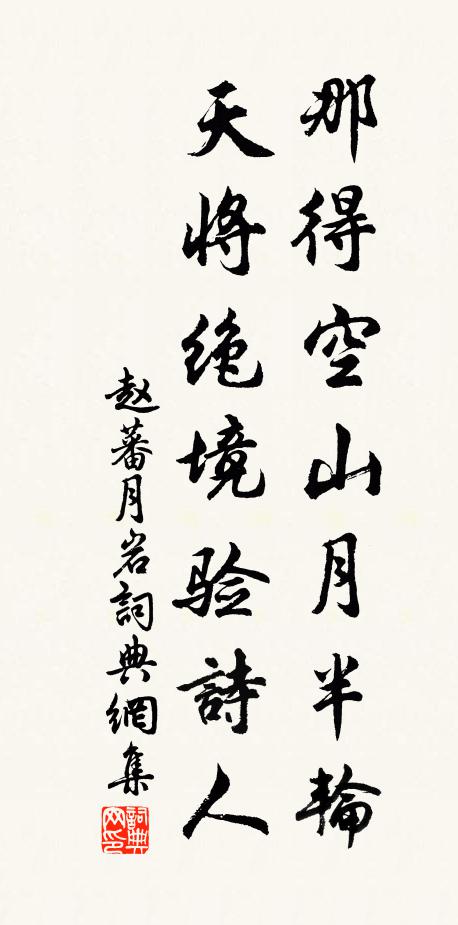 那得空山月半輪
天將绝境验詩人
赵蕃月岩詞典網集
詞典网印